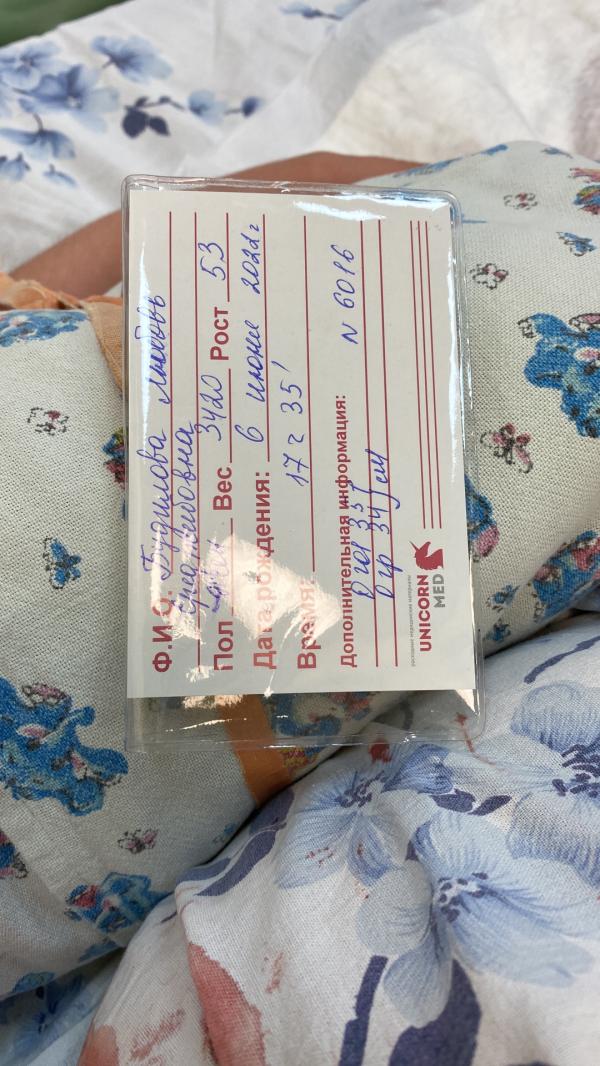 Ф.И.О. Будилова Любовь
Пол Вес 3420 Рост 53
Дата рождения: 6 июня 2022 г
Время: 17 г 35'
Дополнительная информация:
О гол 35 N 6016
О гр 34 см
расходные медицинские материалы
UNICORN
MED